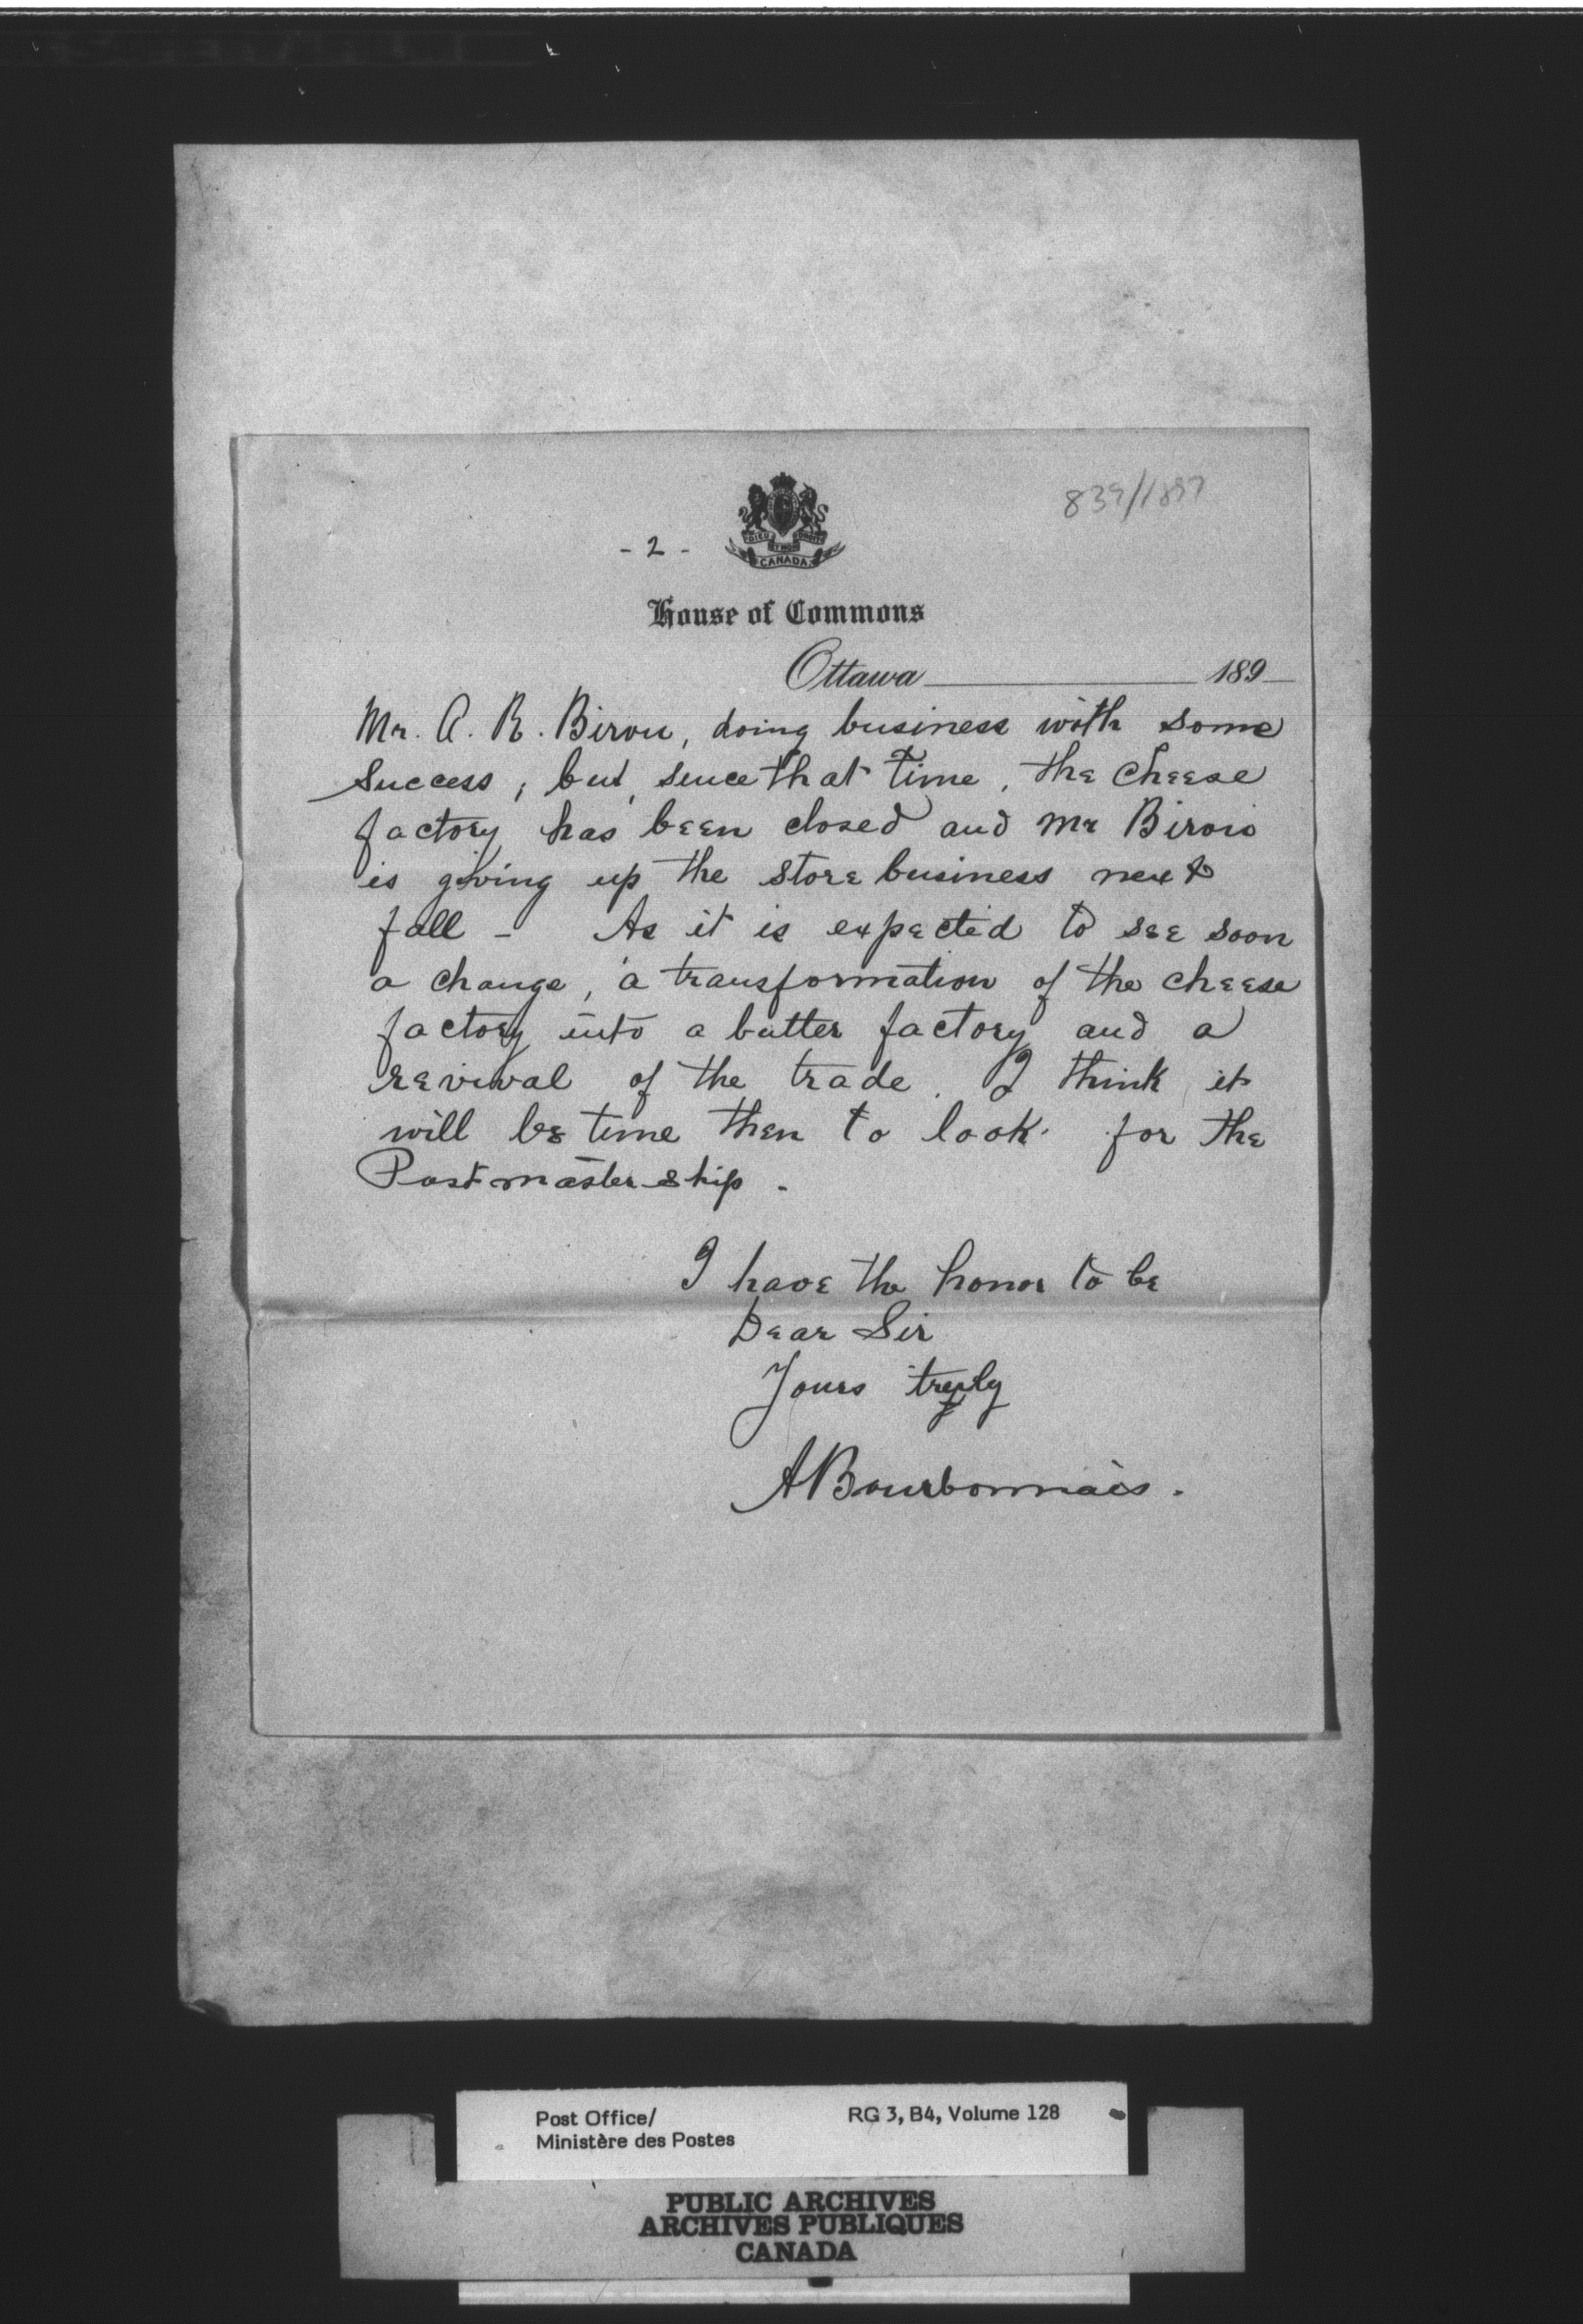 839/1897
- 2 -
DIEU ET MON DROIT
CANADA
House of Commons
Ottawa 189
Mr. A. R. Birou, doing business with some
success, but, since that time, the cheese
factory has been closed and Mr Birou
is giving up the store business next
fall - As it is expected to see soon
a change, a transformation of the cheese
factory into a butter factory and a
revival of the trade. I think it
will be time then to look for the
Postmastership.
I have the honor to be
Dear Sir
Yours truly
A Bourbonnais.
Post Office/ RG 3, B4, Volume 128
Ministère des Postes
PUBLIC ARCHIVES
ARCHIVES PUBLIQUES
CANADA